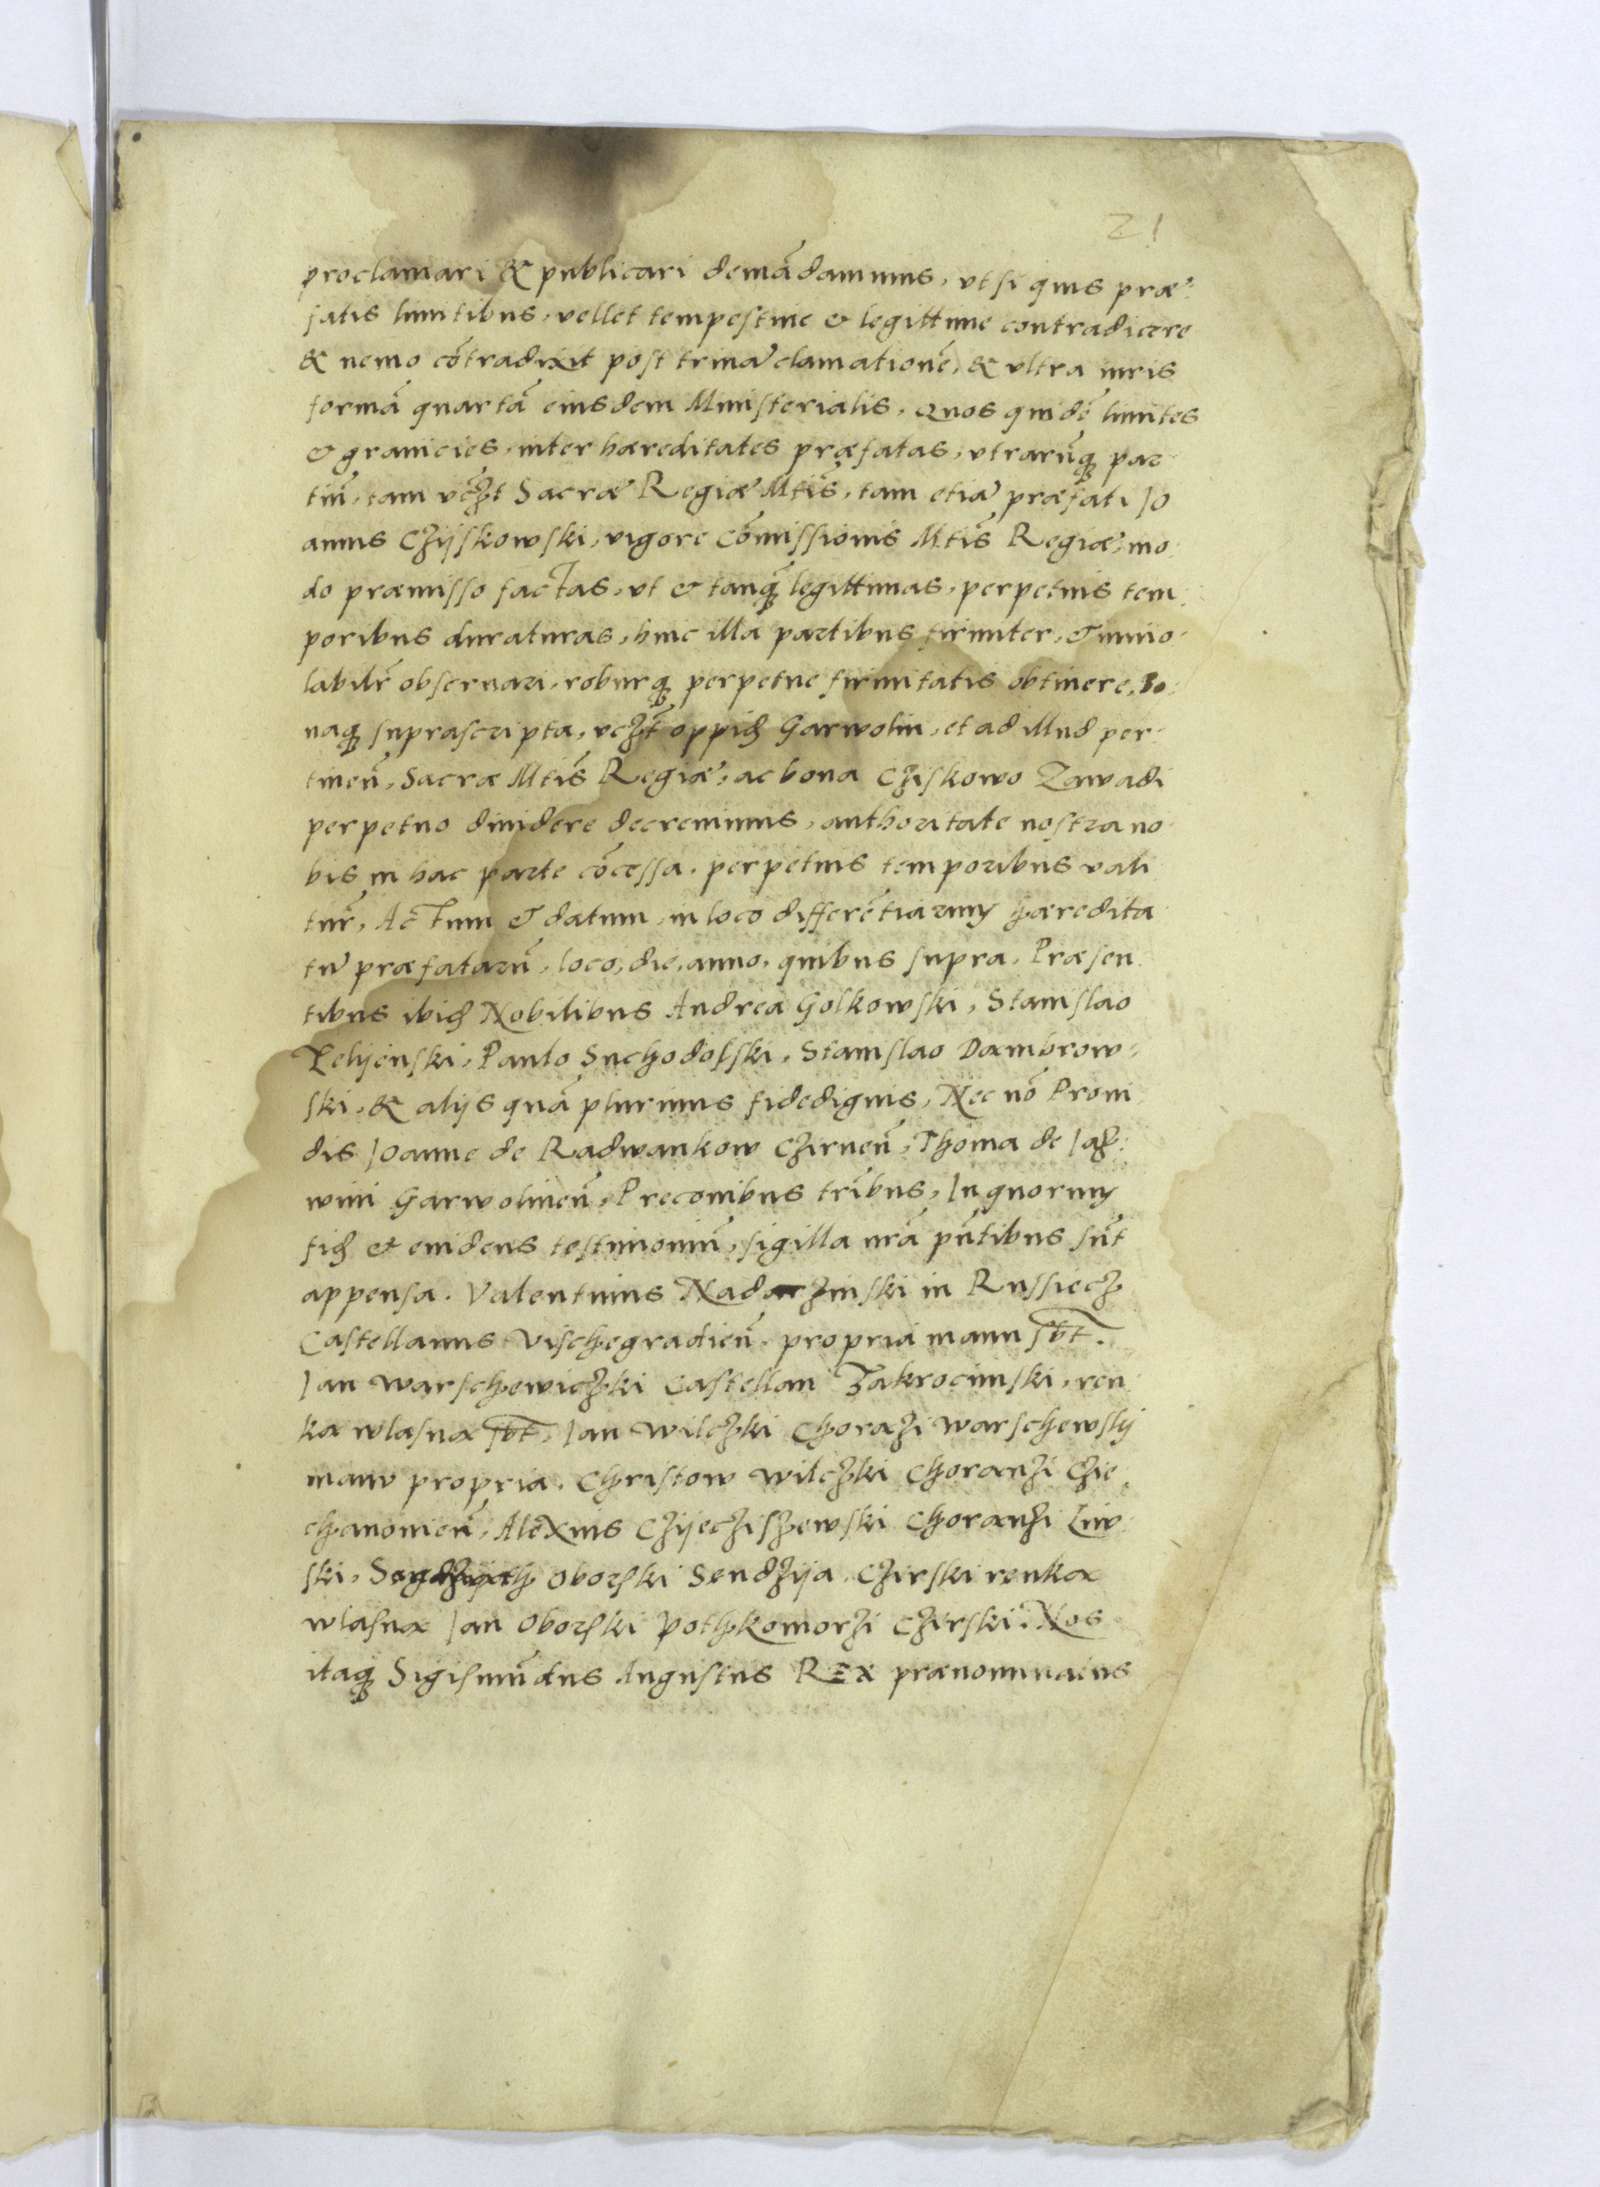 21
proclamari & publicari demādamums, ut si quis præ:
fatis limitibus, vellet tempestiue & legittime contradicere
& nemo cōtradixit post trinā clamationē, & ultra iuris
formā quartā eiusdem Ministerialis. Quos quidē limites
& granicies, inter hæreditates præfatas, utrarūq; par
tiū, tam uczt Sacræ Regiæ Mtis, tam etiā præfati Jo
annis Czijskowski, uigore Cōmissionis Mtis Regiæ, mo
do præmisso factas, ut & tanq̄ legittimas, perpetuis tem
poribus duraturas, hinc illa partibus firmiter, & inuio
labilr̄ obseruari, roburq; perpetue firmitatis obtinere, Bo
naq; suprascripta, uczt oppid Garwolin, et ad illud per
tineñ, Sacræ Mtis Regiæ, ac bona Cziskowo Zawadi
perpetuo diuidere decreuimus, authoritate nostra no
bis in hac parte cōcessa. perpetuis temporibus uali
tur̄, Actum & datum, in loco differētiarum hæredita
tū præfatarū, loco, die, anno, quibus supra. Præsen
tibus ibid Nobilibus Andrea Golkowski, Stanislao
Zelijenski, Paulo Suchodolski, Stanislao Dambrow-
ski, & alijs quā plurimis fidedignis, Nec nō Proui
dis Joanne de Radwankow Czirneñ, Thoma de Jaz:
wini Garwolineñ, Preconibus tribus, In quorum
fid & euidens testimoniū, sigilla nrā pn̄tibus sūt
appensa. Valentinus Nadarzinski in Russiecz
Castellanus Vischegradieñ, propria manu sbt.
Jan Warschewiczki Castellan Zakrocimski, ren
ka wlasna sbt, Jan Wilczki Chorazi Warschewskij
manu propria. Christow Wilczki Choranzi Czie
chanouieñ, Alexius Czijecziszewski Choranzi Liw
ski, Oborski Sendzija Czirski renka
wlasna Jan Oborski Pothkomorzi Czirski. Nos
itaq; Sigismūdus Augustus REX prænominatus